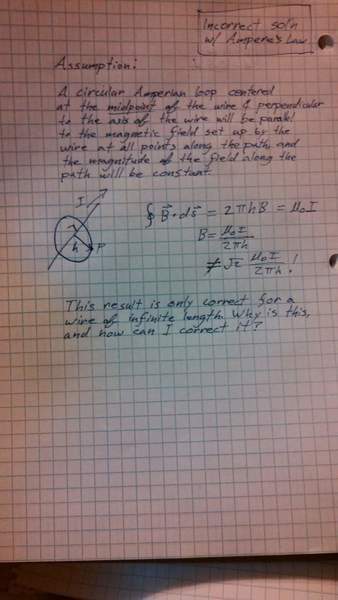 Incorrect sol'n
w/ Ampere's Law
Assumption:
A circular Amperian loop centered
at the midpoint of the wire & perpendicular
to the axis of the wire will be parallel
to the magnetic field set up by the
wire at all points along the path, and
the magnitude of the field along the
path will be constant.
I
h
P
∮ B⃗ • ds⃗ = 2πhB = μ₀I
B = μ₀I / 2πh
≠ √2 μ₀I / 2πh !
This result is only correct for a
wire of infinite length. Why is this,
and how can I correct it?